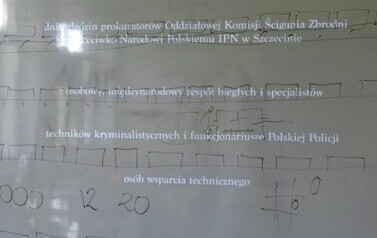 dni i godzin prokuratorów Oddziałowej Komisji Ścigania Zbrodni
Przeciwko Narodowi Polskiemu IPN w Szczecinie
osobowy, międzynarodowy zespół biegłych i specjalistów
techników kryminalistycznych i funkcjonariusze Polskiej Policji
osób wsparcia technicznego
000 12 20